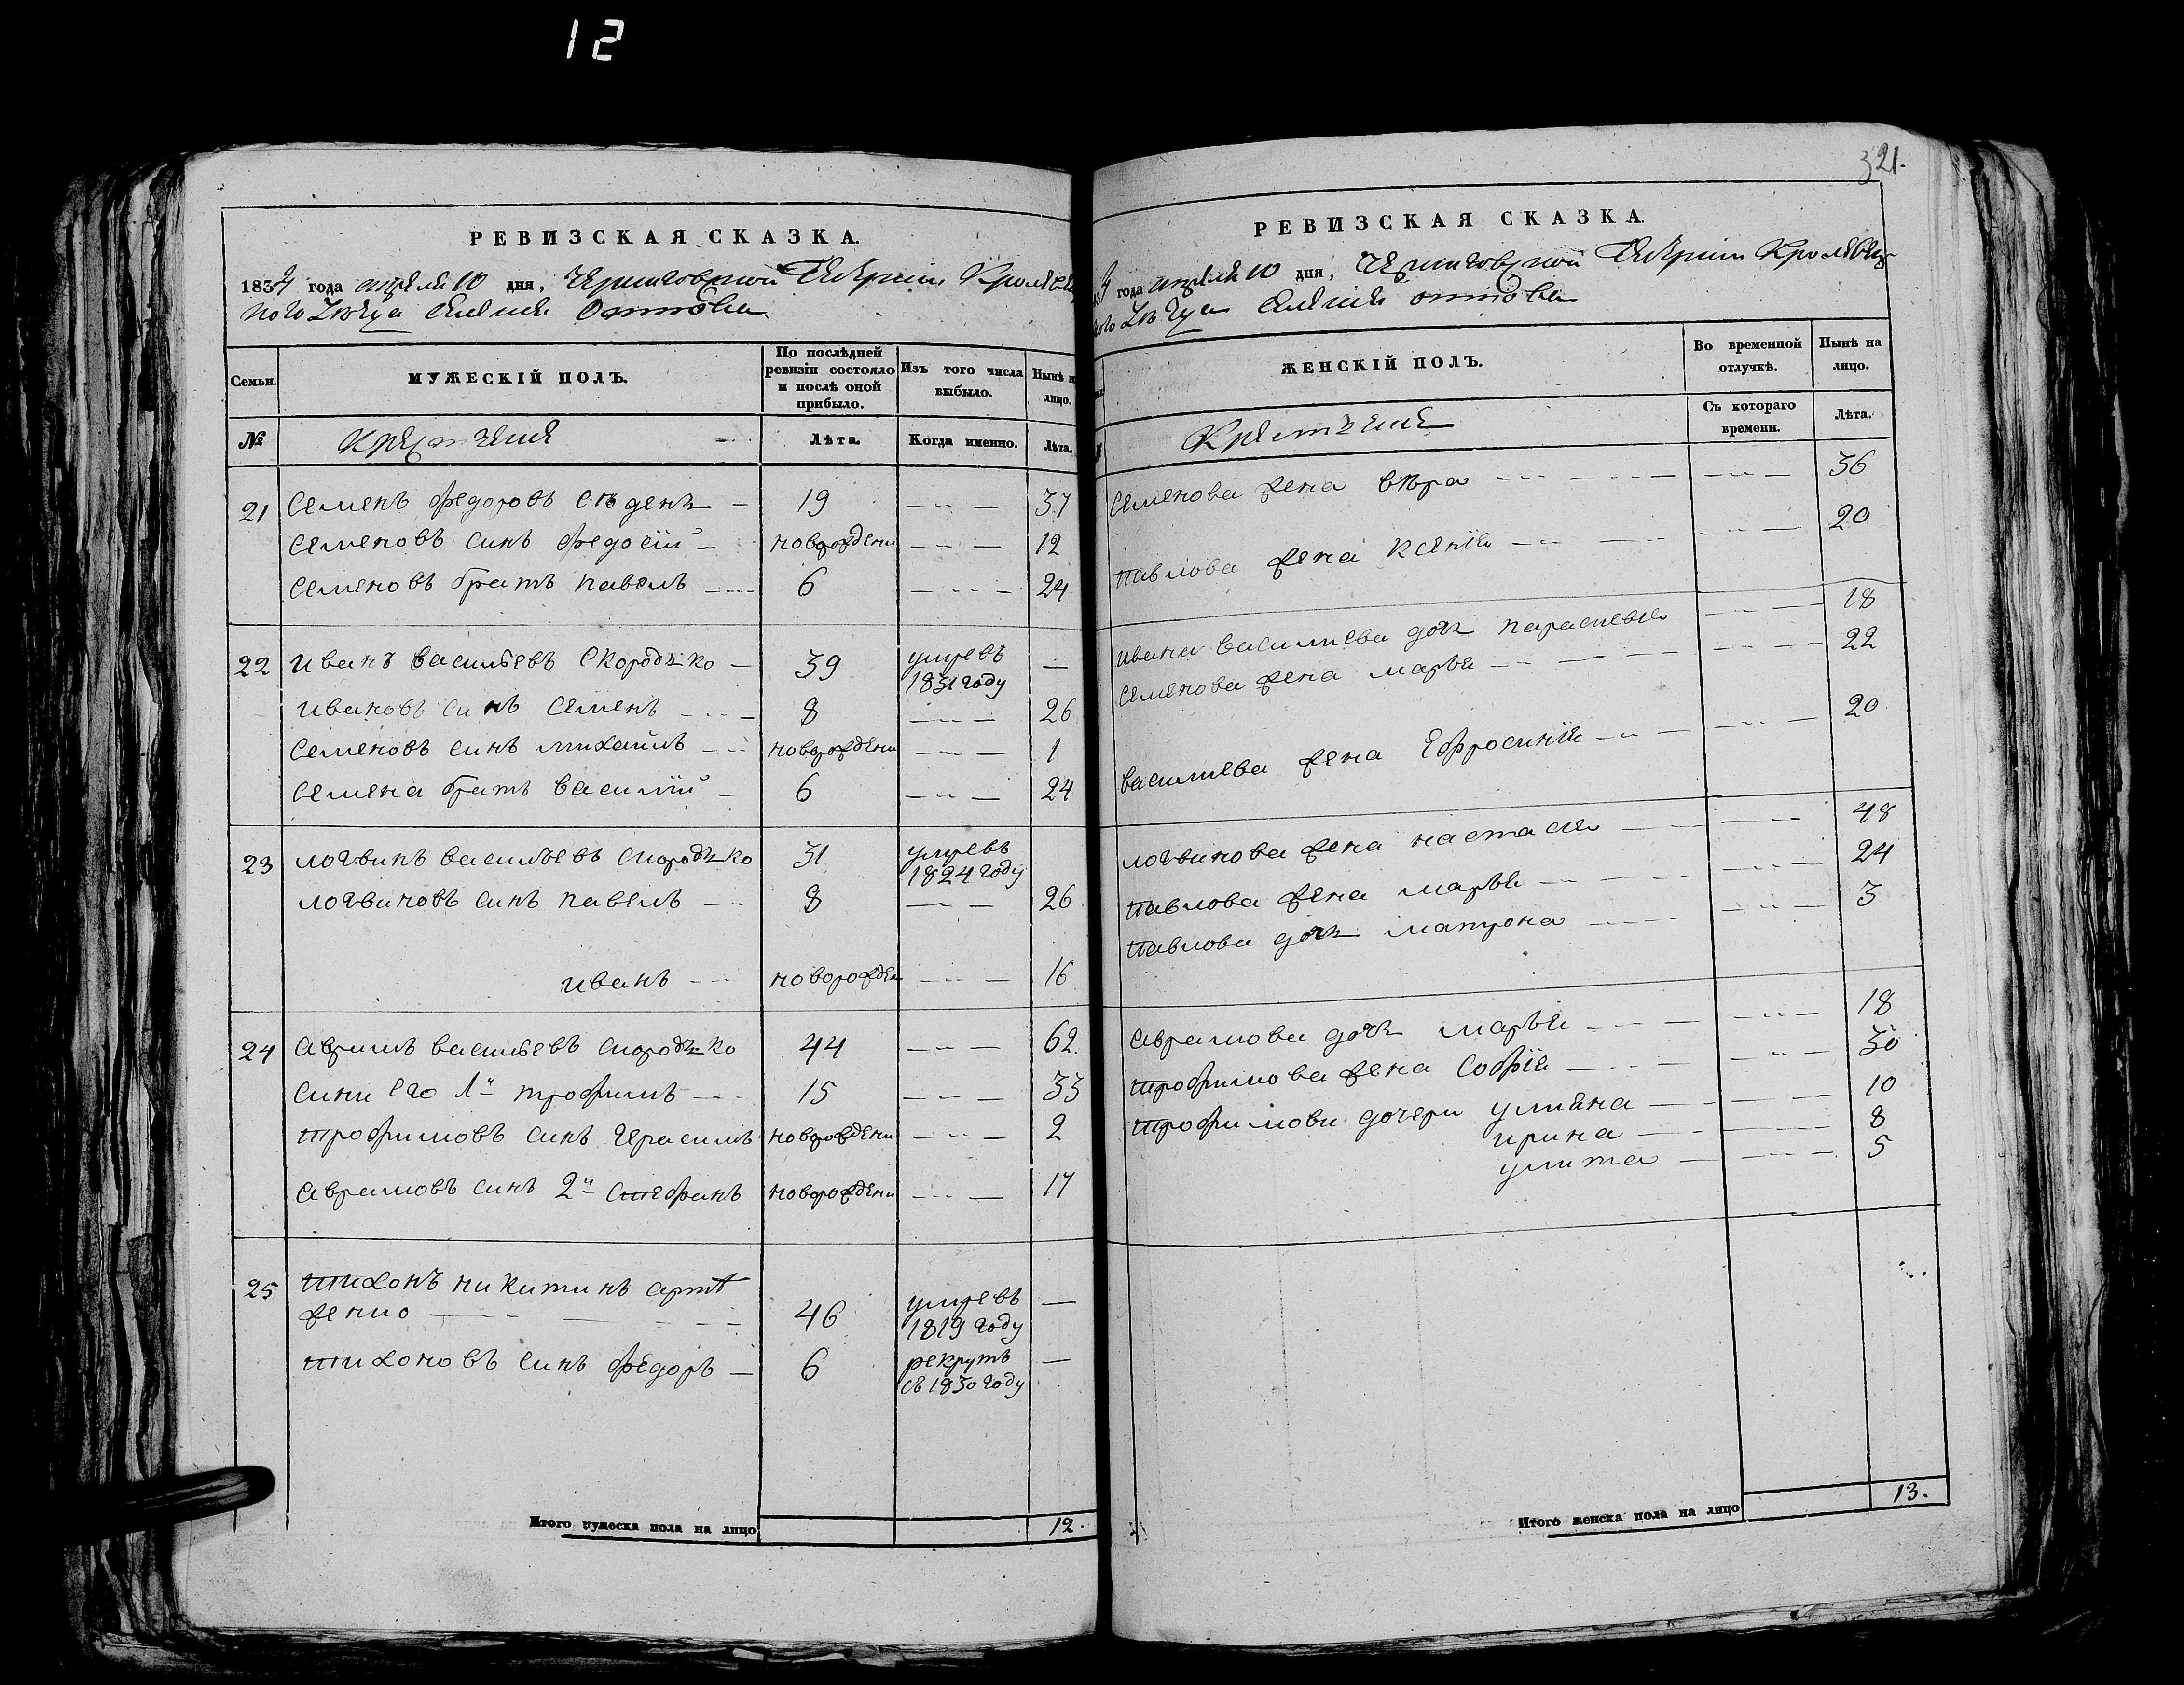 12
321.
РЕВИЗСКАЯ СКАЗКА.
1834 года апреля 10 дня, Черниговской Губернии Кролевец
кого Уѣзда Селения
Семьи.
МУЖЕСКІЙ ПОЛЪ.
По послѣдней ревизіи состояло и послѣ оной прибыло.
Изъ того числа выбыло.
Нынѣ н лицо.
№
Крестяне
Лѣта.
Когда именно.
Лѣта.
21 Семенъ Федоровъ 19 37
Семеновъ синъ Федосій новорождени 12
Семеновъ братъ павелъ 6 24
22 иванъ васильевъ Скоробѣко 39 умревъ 1831 году
ивановъ синъ Семенъ 8 26
Семеновъ синъ михайлъ новорождени 1
Семена братъ василій 6 24
23 логвинъ васильевъ скоробѣко 31 умревъ 1824 году
логвиновъ синъ павелъ 8 26
иванъ новорожден 16
24 аврамъ васильевъ скоробѣко 44 62.
сини его 1й трофимъ 15 33
трофимовъ синъ герасимъ новорождени 2
аврамовъ синъ 2й стефанъ новорождени 17
25 тихонъ никитинъ
46 умревъ 1819 году
тихоновъ синъ федоръ 6 рекрутъ съ 1830 году
Итого мужеска пола на лицо 12.
РЕВИЗСКАЯ СКАЗКА.
34 года апреля 10 дня, Черниговской Губернии Кролевец
кого Уѣзда Селения
ЖЕНСКІЙ ПОЛЪ.
Во временной отлучкѣ.
Нынѣ на лицо.
Крестяне
Съ котораго времени.
Лѣта.
Семенова жена вѣра 36
павлова жена ксенія 20
ивана василиева дочь парасковия 18
Семенова жена марья 22
василиева жена Ефросинія 20
логвинова жена настася 48
павлова жена марья 24
павлова дочь матрона 3
аврамова дочь марья 18
трофимова жена софія 30
трофимови дочери улияна 10
ирина 8
улита 5
Итого женска пола на лицо 13.